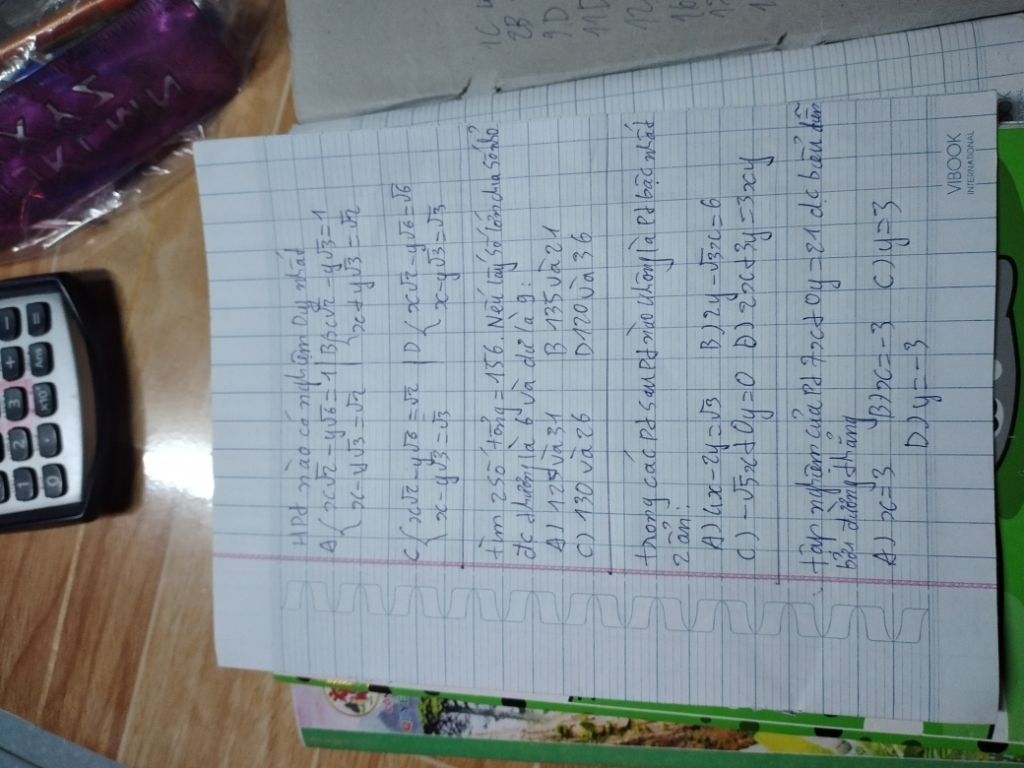 HPt nào có nghiệm Duy nhất
A { x√2 - y√6 = 1 | B { x√2 - y√3 = 1
x - y√3 = √2 | x + y√3 = √2
C { x√2 - y√6 = √2 | D { x√2 - y√6 = √6
x - y√3 = √3 x - y√3 = √3
tìm 2 số tổng = 156. Nếu lấy số lớn chia số nhỏ
đc thương là 6 và dư là 9:
A) 125 và 31 B 135 và 21
C) 130 và 26 D 120 và 36
trong các Pt sau Pt nào không là Pt bậc nhất
2 ẩn:
A) 4x - 2y = √3 B) 2y - √3x = 6
C) -√5x + 0y = 0 D) 2x + 3y = 3xy
tập nghiệm của Pt 7x + 0y = 21 đc biểu diễn
bởi đường thẳng
A) x = 3 B) x = -3 C) y = 3
D) y = -3
VIBOOK
INTERNATIONAL
1C
2B
9D
11D
12
16